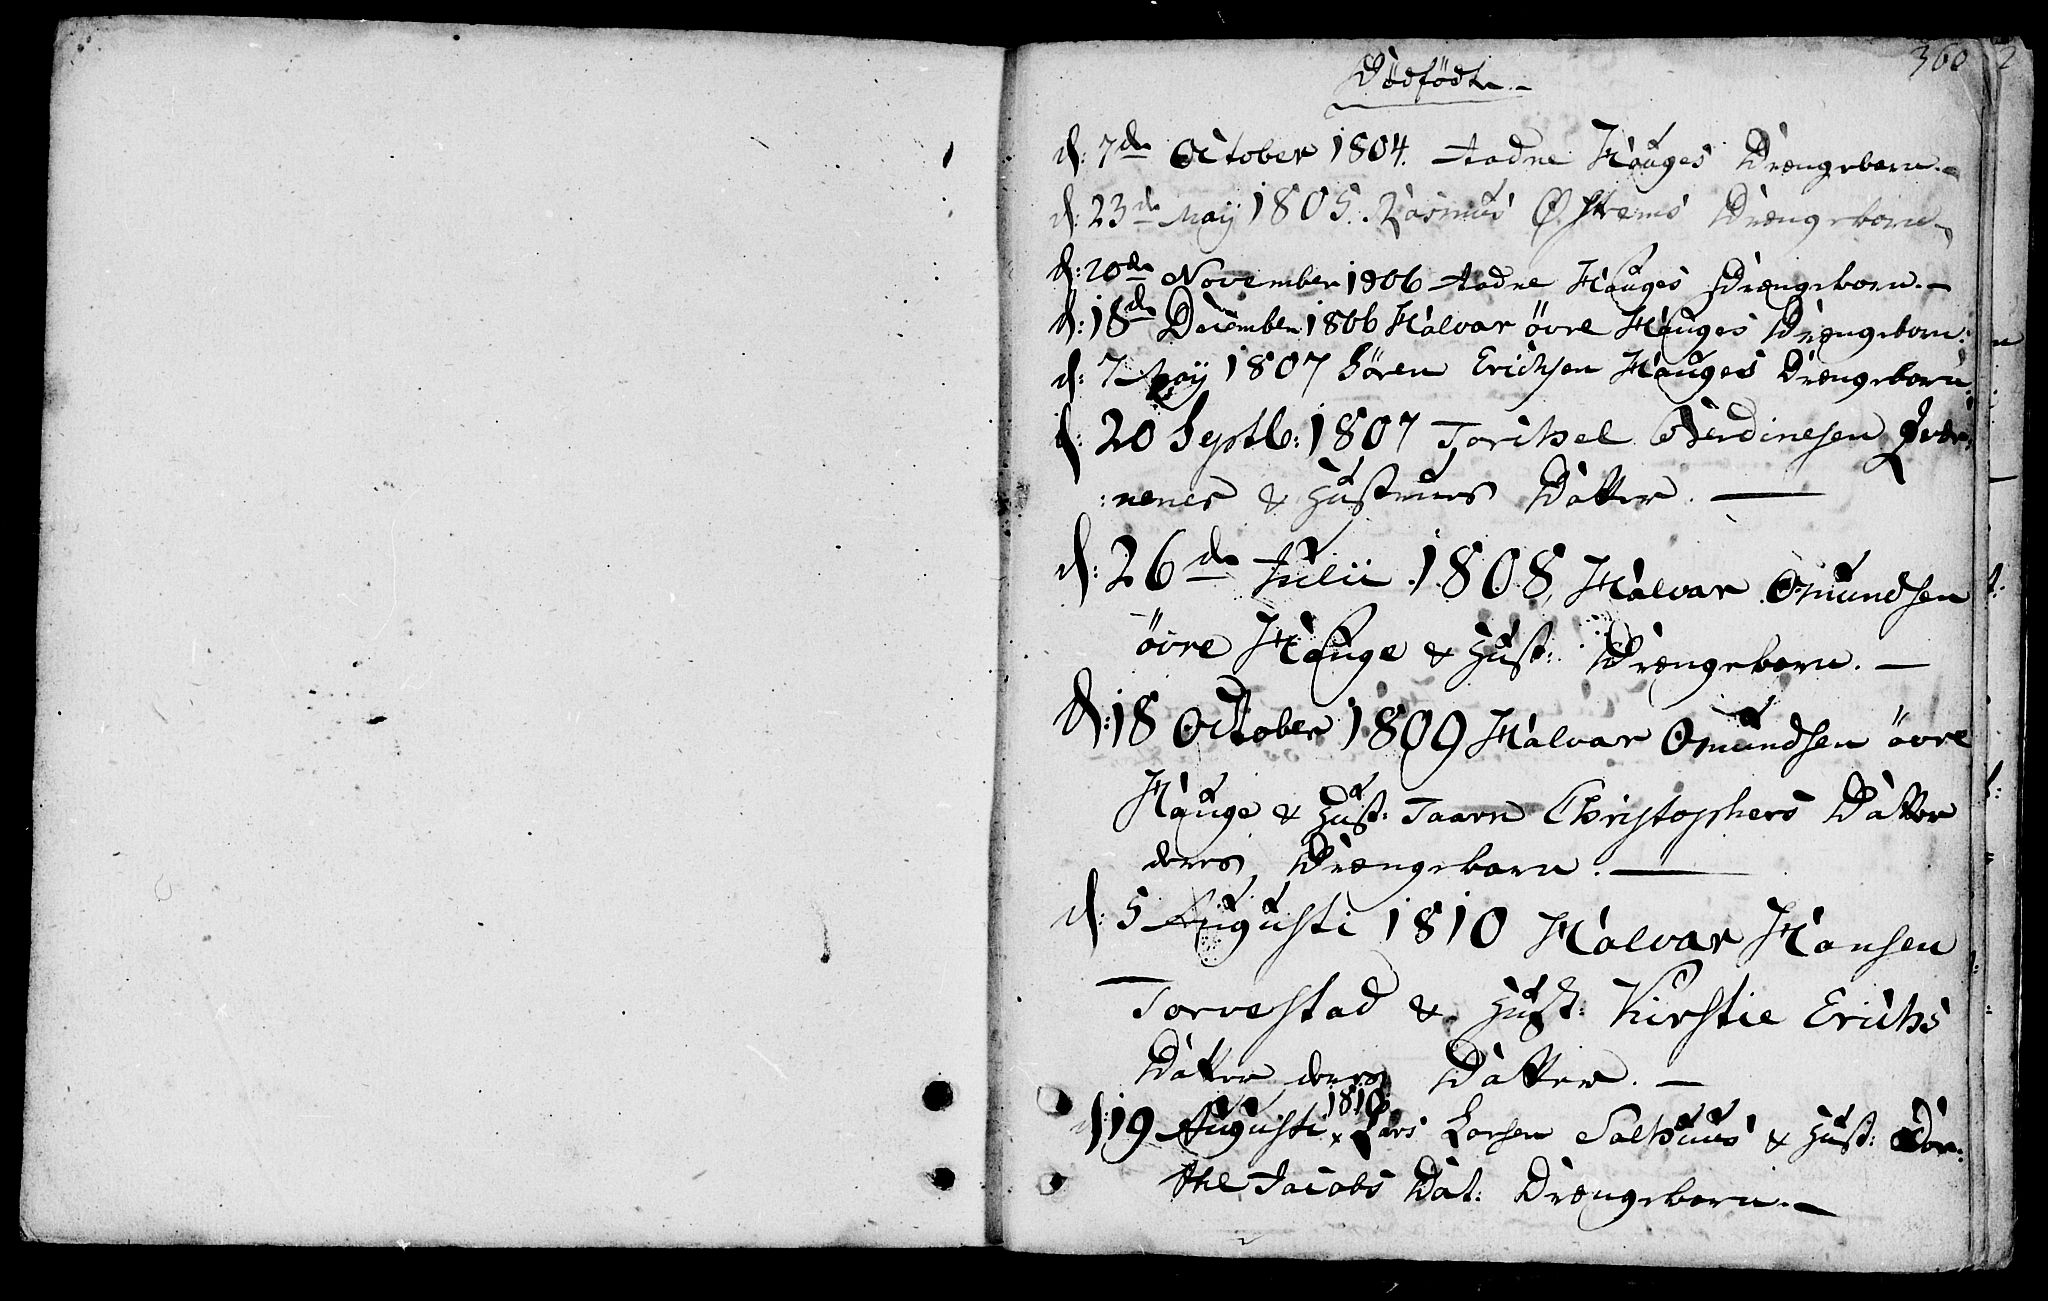 360
Dödfödte.
d: 7de October 1804. Aadne Hauges Drængebarn.
d: 23de Maÿ 1805. Rasmus Østrems Drængebarn.
d: 20de November 1806 Aadne Hauges Drængebarn.
d: 18de December 1806 Halvar övre Hauges Drængebarn:
d: 7 Maÿ 1807 Sören Erichsen Hauges Drængebarn.
d: 20 Septb: 1807 Torchel Qvær:
:nenes & Hustrues Datter.
d: 26de Julii 1808, Halvar Omundsen
övre Hauge & Hust: Drængebarn.
d: 18 October 1809 Halvar Omundsen övre
Hauge & Hust: Taarn Christophers Datter
deres Drængebarn.
d: 5 Augusti 1810 Halvar Hansen
Torvestad & Hust: Kirstie Erichs
Datter deres Datter.
1810
d: 19 Augusti x Lars Larsen Salhuus & Hust: Dor:
the Jacobs Dat: Drængebarn.